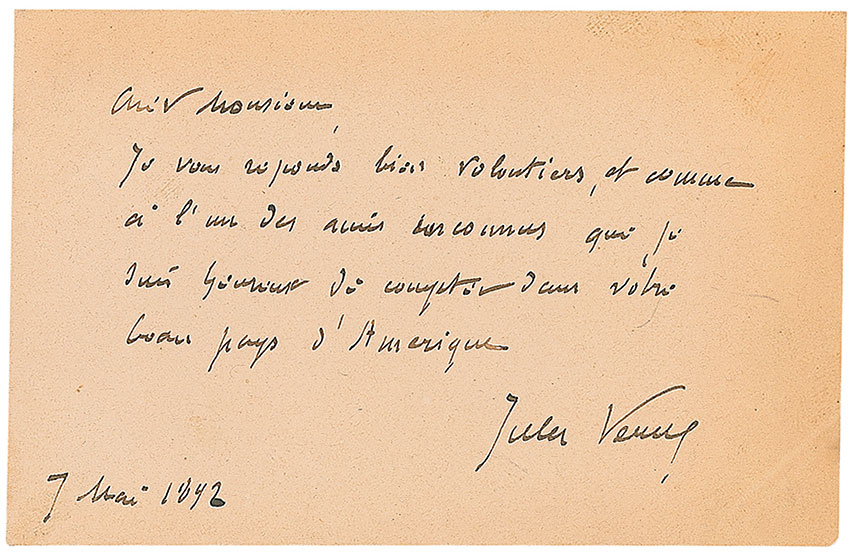 Cher Monsieur,
Je vous reponds bien volontiers, et comme
à l'un des amis inconnus que je
suis heureux de compter dans votre
beau pays d'Amerique
Jules Verne
7 Mai 1892